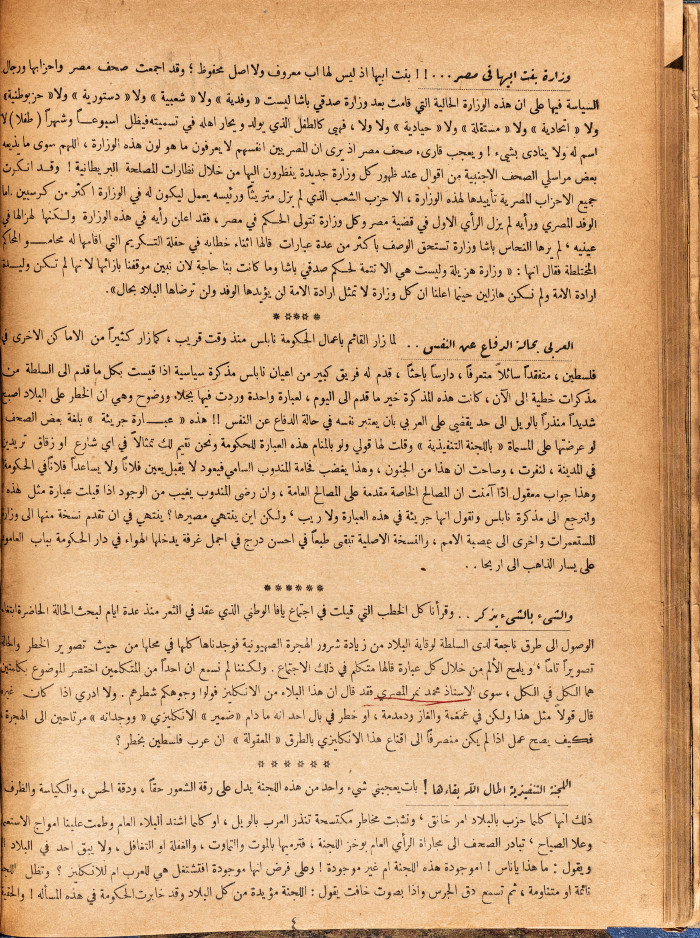 وزارة بنت ابيها في مصر...!! بنت ابيها اذ ليس لها اب معروف ولا اصل محفوظ ؛ وقد اجمعت صحف مصر واحزابها ورجال
السياسة فيها على ان هذه الوزارة الحالية التي قامت بعد وزارة صدقي باشا ليست « وفدية » ولا « شعبية » ولا « دستورية » ولا « حزبوطنية»
ولا « اتحادية » ولا « مستقلة » ولا « حيادية » ولا ولا ، فهي كالطفل الذي يولد ويحار اهله في تسميته فيظل اسبوعاً وشهراً ( طفلا ) لا
اسم له ولا ينادى بشيء ! ويعجب قارىء صحف مصر اذ يرى ان المصريين انفسهم لا يعرفون ما هو لون هذه الوزارة ، اللهم سوى ما يذيعه
بعض مراسلي الصحف الاجنبية من اقوال عند ظهور كل وزارة جديدة ينظرون اليها من خلال نظارات المصلحة البريطانية ! وقد انكرت
جميع الاحزاب المصرية تأييدها لهذه الوزارة ، الا حزب الشعب الذي لم يزل متريثاً ورئيسه يعمل ليكون له في الوزارة اكثر من كرسيين اما
الوفد المصري ورأيه لم يزل الرأي الاول في قضية مصر وكل وزارة تتولى الحكم في مصر ، فقد اعلن رأيه في هذه الوزارة ولكنها لهزالها في
عينيه ، لم يرها النحاس باشا وزارة تستحق الوصف بأكثر من عدة عبارات قالها اثناء خطابه في حفلة التكريم التي اقامها له محامو المحاكم
المختلطة فقال انها : « وزارة هزيلة وليست هي الا تتمة لحكم صدقي باشا وما كانت بنا حاجة لان نبين موقفنا بازائها لانها لم تكن وليدة
ارادة الامة ولم نكن هازلين حينما اعلنا ان كل وزارة لا تمثل ارادة الامة لن يؤيدها الوفد ولن ترضاها البلاد بحال».
* ** ** *
العربي بحالة الدفاع عن النفس . . لما زار القائم باعمال الحكومة نابلس منذ وقت قريب ، كما زار كثيراً من الاماكن الاخرى في
فلسطين ، متفقداً سائلاً متعرفاً ، دارساً باحثاً ، قدم له فريق كبير من اعيان نابلس مذكرة سياسية اذا قيست بكل ما قدم الى السلطة من
مذكرات خطية الى الآن ، كانت هذه المذكرة خير ما قدم الى اليوم ، لعبارة واحدة وردت فيها بجلاء ووضوح وهي ان الخطر على البلاد اصبح
شديداً منذراً بالويل الى حد يقضي على العربي بان يعتبر نفسه في حالة الدفاع عن النفس !! هذه « عبارة جريئة » بلغة بعض الصحف،
لو عرضتها على المسماة « باللجنة التنفيذية » وقلت لها قولي ولو بالمنام هذه العبارة للحكومة ونحن نقيم لك تمثالاً في اي شارع او زقاق تريدين
في المدينة ، لنفرت ، وصاحت ان هذا من الجنون ، وهذا يغضب فخامة المندوب السامي فيعود لا يقبل بعين فلاناً ولا يساعد فلاناً في الحكومة
وهذا جواب معقول اذا آمنت ان المصالح الخاصة مقدمة على المصالح العامة ، وان رضى المندوب يغيب من الوجود اذا قيلت عبارة مثل هذه !
ولنرجع الى مذكرة نابلس ونقول انها جريئة في هذه العبارة ولا ريب ، ولكن اين ينتهي مصيرها ؟ ينتهي في ان تقدم نسخة منها الى وزارة
المستعمرات واخرى الى عصبة الامم ، والنسخة الاصلية تبقى طبعاً في احسن درج في اجمل غرفة يدخلها الهواء في دار الحكومة بباب العامود
على يسار الذاهب الى اريحا . .
* * * * * *
والشيء بالشيء يذكر . . وقرأنا كل الخطب التي قيلت في اجتماع يافا الوطني الذي عقد في الثغر منذ عدة ايام لبحث الحالة الحاضرة ابتغاء
الوصول الى طرق ناجعة لدى السلطة لوقاية البلاد من زيادة شرور الهجرة الصهيونية فوجدناها كلها في محلها من حيث تصوير الخطر والحالة
تصويراً تاماً ، ويلمح الألم من خلال كل عبارة قالها متكلم في ذلك الاجتماع . ولكننا لم نسمع ان احداً من المتكلمين اختصر الموضوع بكلمتين
هما الكل في الكل ، سوى الاستاذ محمد نمر المصري فقد قال ان هذا البلاء من الانكليز فولوا وجوهكم شطرهم . ولا ادري اذا كان غيره
قال قولاً مثل هذا ولكن في غمغمة والغاز ودمدمة ، او خطر في بال احد انه ما دام «ضمير» الانكليزي « ووجدانه » مرتاحين الى الهجرة ،
فكيف يصح عمل اذا لم يكن منصرفاً الى اقناع هذا الانكليزي بالطرق « المعقولة » ان عرب فلسطين بخطر ؟
* * * * * *
اللجنة التنفيذية اطال الله بقاءها ! بات يعجبني شيء واحد من هذه اللجنة يدل على رقة الشعور حقاً ، ودقة الحس ، والكياسة والظرف
ذلك انها كلما حزب بالبلاد امر خانق ، ونشبت مخاطر مكتسحة تنذر العرب بالويل ، او كلما اشتد البلاء العام وطمت علينا امواج الاستعمار
وعلا الصياح ، تبادر الصحف الى مجاراة الرأي العام بوخز اللجنة ، فترميها بالموت والتماوت ، والغفلة او التغافل ، ولا يبقى احد في البلاد الا
ويقول : ما هذا ياناس ! اموجودة هذه اللجنة ام غير موجودة ! وعلى فرض انها موجودة افتشتغل هي للعرب ام للانكليز ؟ وتظل اللجنة
نائمة او متناومة ، ثم تسمع دق الجرس واذا بصوت خافت يقول : اللجنة مؤيدة من كل البلاد وقد خابرت الحكومة في هذه المسألة ! والحقيقة
٤